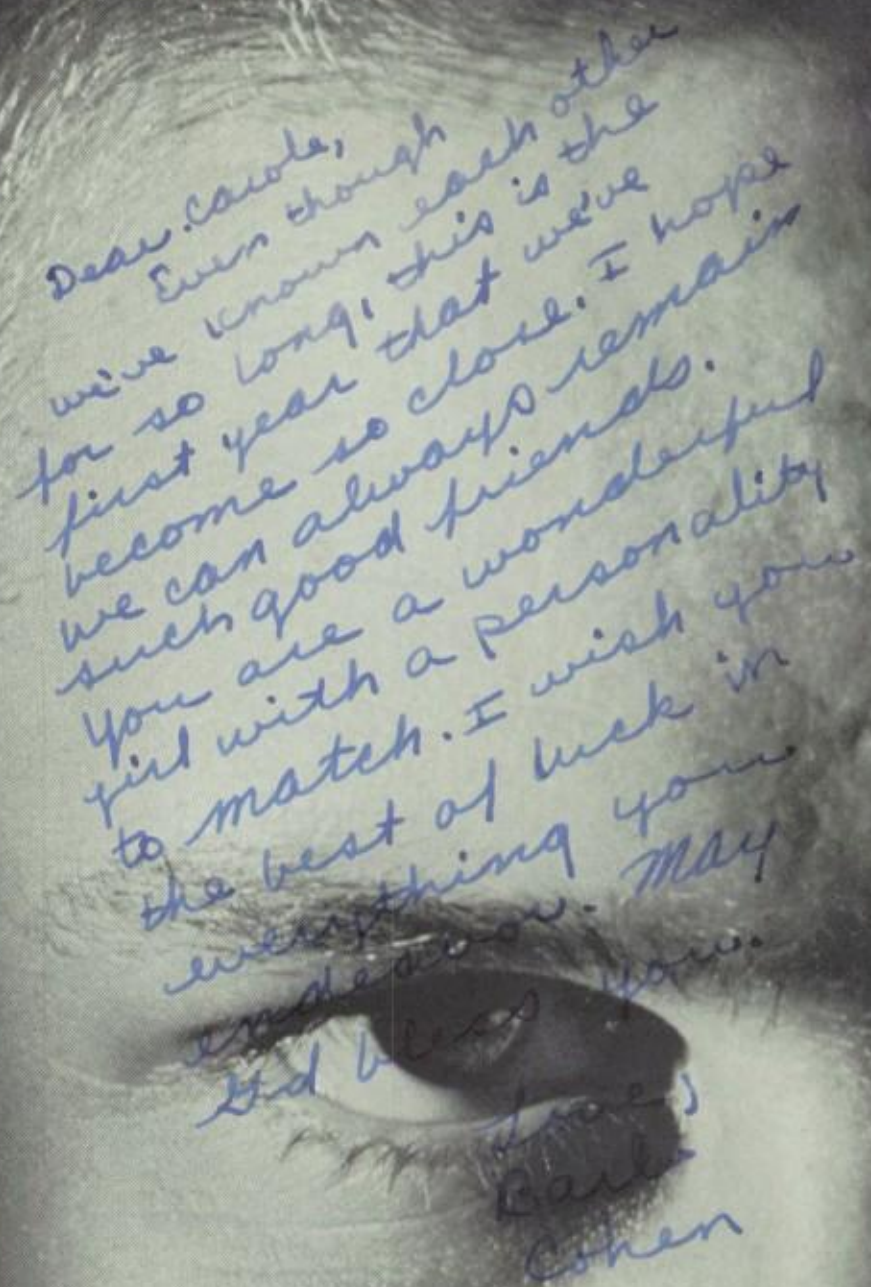 Dear Carole,
Even though
we've known each other
for so long, this is the
first year that we've
become so close. I hope
we can always remain
such good friends.
You are a wonderful
girl with a personality
to match. I wish you
the best of luck in
everything you
endeavor. May
God bless you.
Love,
Barb
Cohen